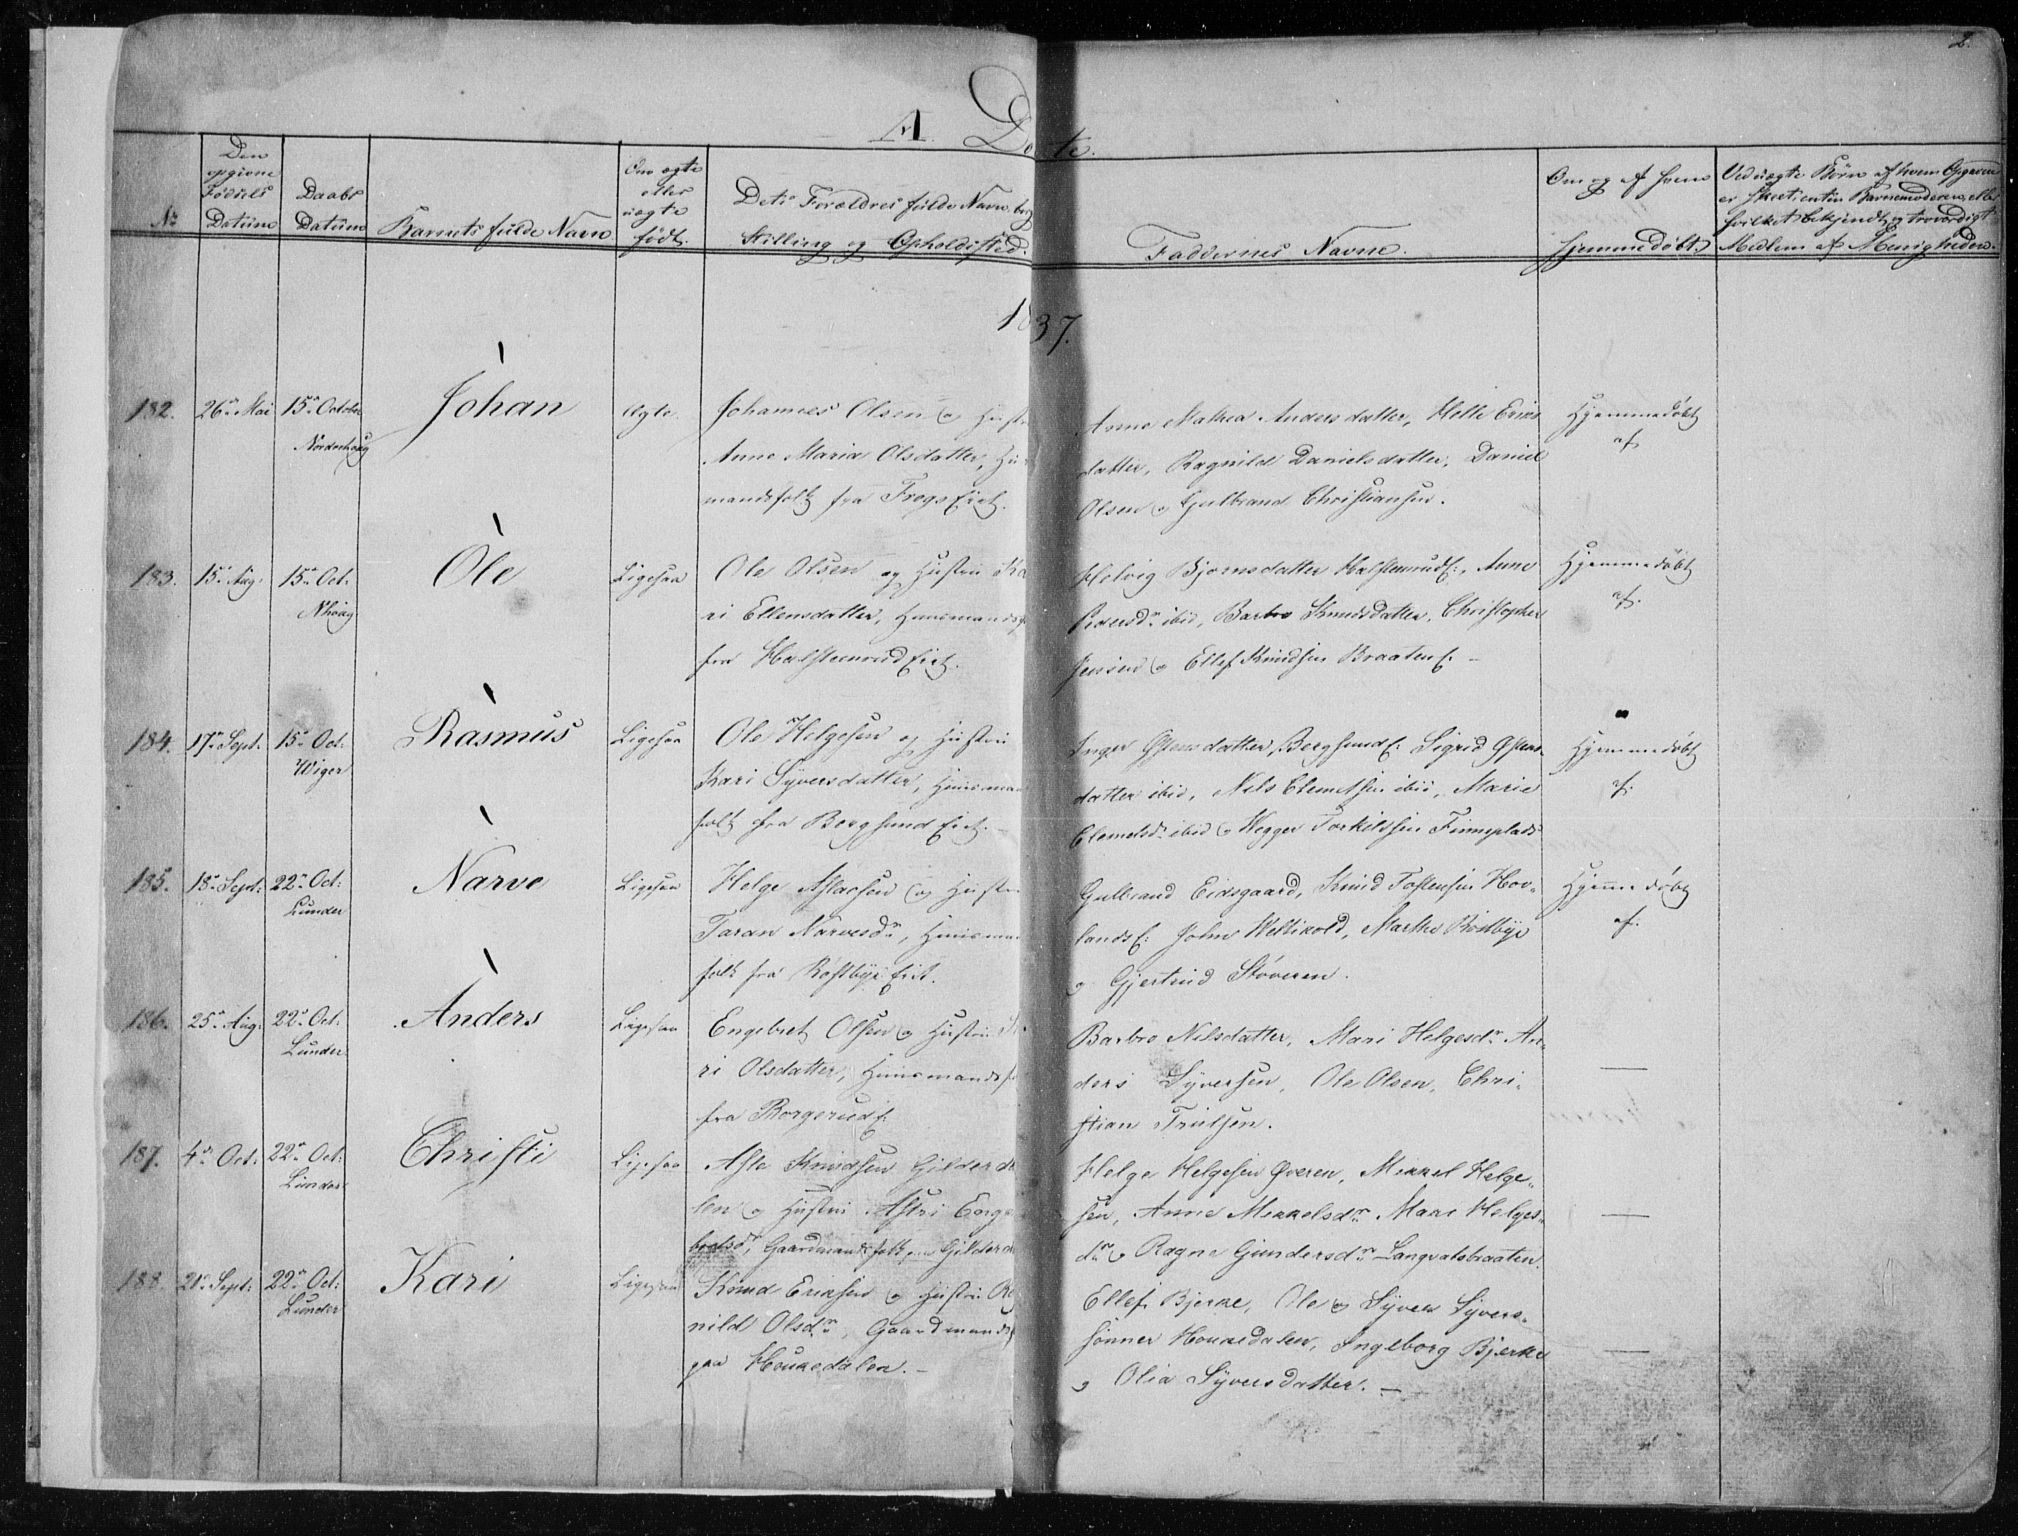 2.
A. Døbte.
No
Den opgivne Fødsels Datum
Daabs Datum
Barnets fulde Navn
Om ægte eller uægte født.
Dets Forældres fulde Navn
Stilling og Opholdssted.
Faddernes Navne.
Om og af hvem
hjemmedøbt.
Ved uægte Børn af hvem Opgaven
er skeet, enten Barnemoderen, eller
hvilket bekjendt og troværdigt
Medlem af Menigheden.
1837.
182. 26de Mai 15de October Johan ægte. Johannes Olsen og Hustru
Norderhoug
Anne Maria Olsdatter, Hu
mandsfolk fra Frogs Eiet.
Anne Mathea Andersdatter, Helle Eriks
datter, Ragnild Danielsdatter, Daniel
Olsen og Gulbrand Christiansen.
Hjemmedøbt
af
183. 15de Aug: 15de Oct: Ole Ligesaa Ole Olsen og Hustru Ka
Nhoug
ri Ellensdatter, Huusmandsf
fra Halsteenrud Eiet.
Helvig Bjørnsdatter Halsteenrudf:, Anne
Pedersdr ibid, Barbro Knudsdatter, Christopher
Jensen og Ellef Knudsen Braaten f. -
Hjemmedøbt
af.
184. 17de Sept. 15de Oct: Rasmus Ligesaa Ole Helgesen og Hustru
Wiger
Kari Syversdatter, Huusman
folk fra Bergsund Eiet.
Inger Østensdatter, Bergsundf: Sigrid Østens-
datter ibid, Nils Clemetsen ibid, Marie
Clemetsdr ibid og Wegger Torkildsen Finneplads
Hjemmedøbt
af.
185. 18de Sept: 22de Oct: Narve Ligesaa Helge Aslesen og Hustru
Lunder
Taran Narvesdr, Huusman
folk fra Røstbye Eiet.
Gulbrand Eidsgaard, Knud Tostensen Hov-
landsf: John Weltivold, Marthe Røstbye
og Gjertrud Støveren.
Hjemmedøbt
af.
186. 25de Aug: 22de Oct: Anders Ligesaa Engebret Olsen og Hustru
Lunder
ri Olsdatter, Huusmandsf
fra Borgerudf:
Barbro Nilsdatter, Mari Helgesdr An-
ders Syversen, Ole Olsen, Chri-
stian Trulsen.
187. 4de Oct: 22de Oct: Christi Ligesaa Asle Knudsen Gilderda
Lunder
len og Hustru Astri Enge
bretsdr, Gaardmandsfolk Gilderda
Helge Helgesen Øveren, Mikkel Helge-
sen, Anne Mikkelsdr Mari Helges-
dr og Ragne Gundersdr Langvatsbraaten.
188. 21de Sept: 22de Oct: Kari Ligesaa Knud Eriksen og Hustru Rag
Lunder
nild Olsdr, Gaardmandsf
paa Houkedalen. -
Ellef Bjerke, Ole og Syver Syvers-
sønner Houkedalen, Ingeborg Bjerke
og Olia Syversdatter. -